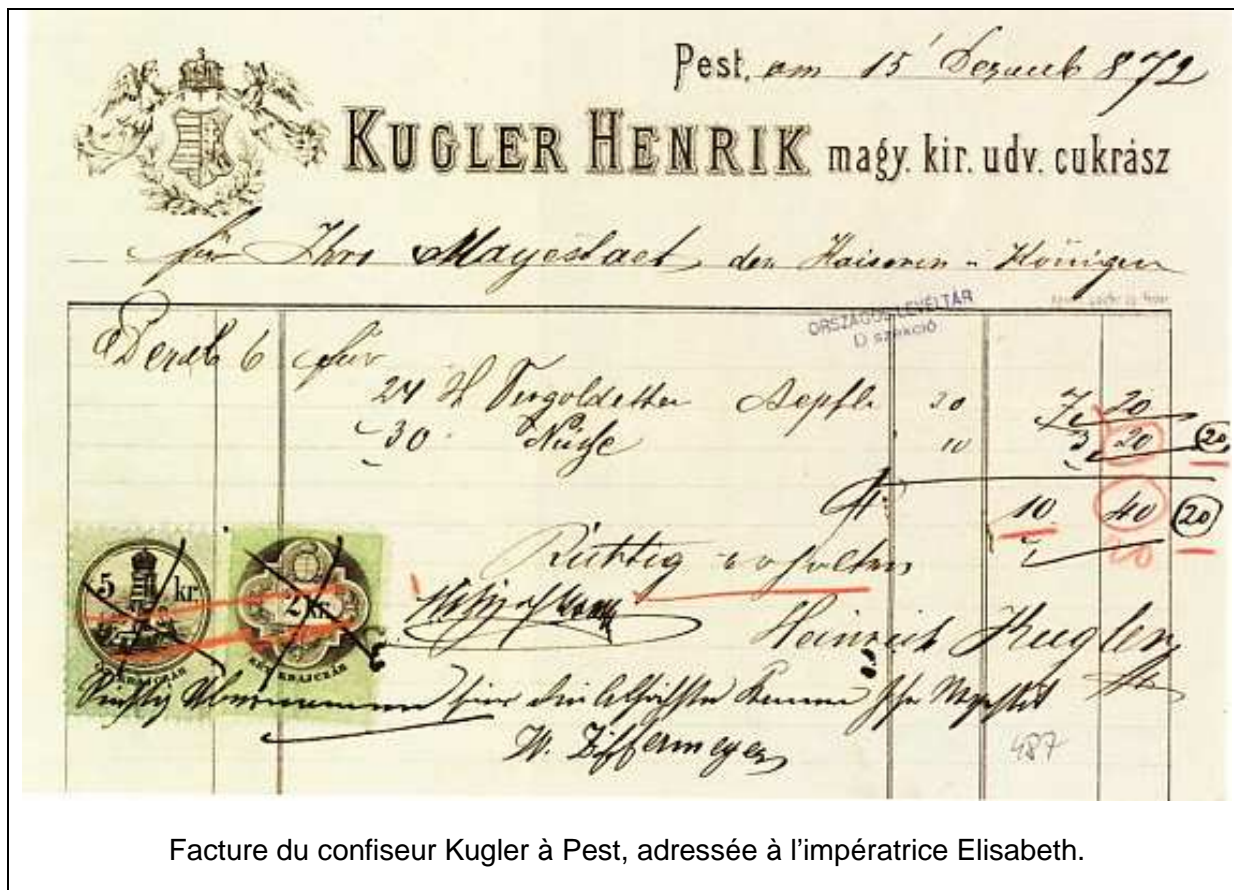 Pest, am 15 Dezemb 872
KUGLER HENRIK magy. kir. udv. cukrász
für Ihro Mayestaet den Kaiseren u Königen
ORSZÁGOS LEVÉLTÁR
D szekció
Dezeb 6 für
24 Vergoldetter Aepfl 30 7 20
30 Nüsse 10 3 20 20
10 40 20
20
Richtig erhalten
5 kr
2 kr
KRAJCZÁR
KRAJCZÁR
Heinrich Kugler
Majestät
W. Ziffermeyer
487
Facture du confiseur Kugler à Pest, adressée à l'impératrice Elisabeth.